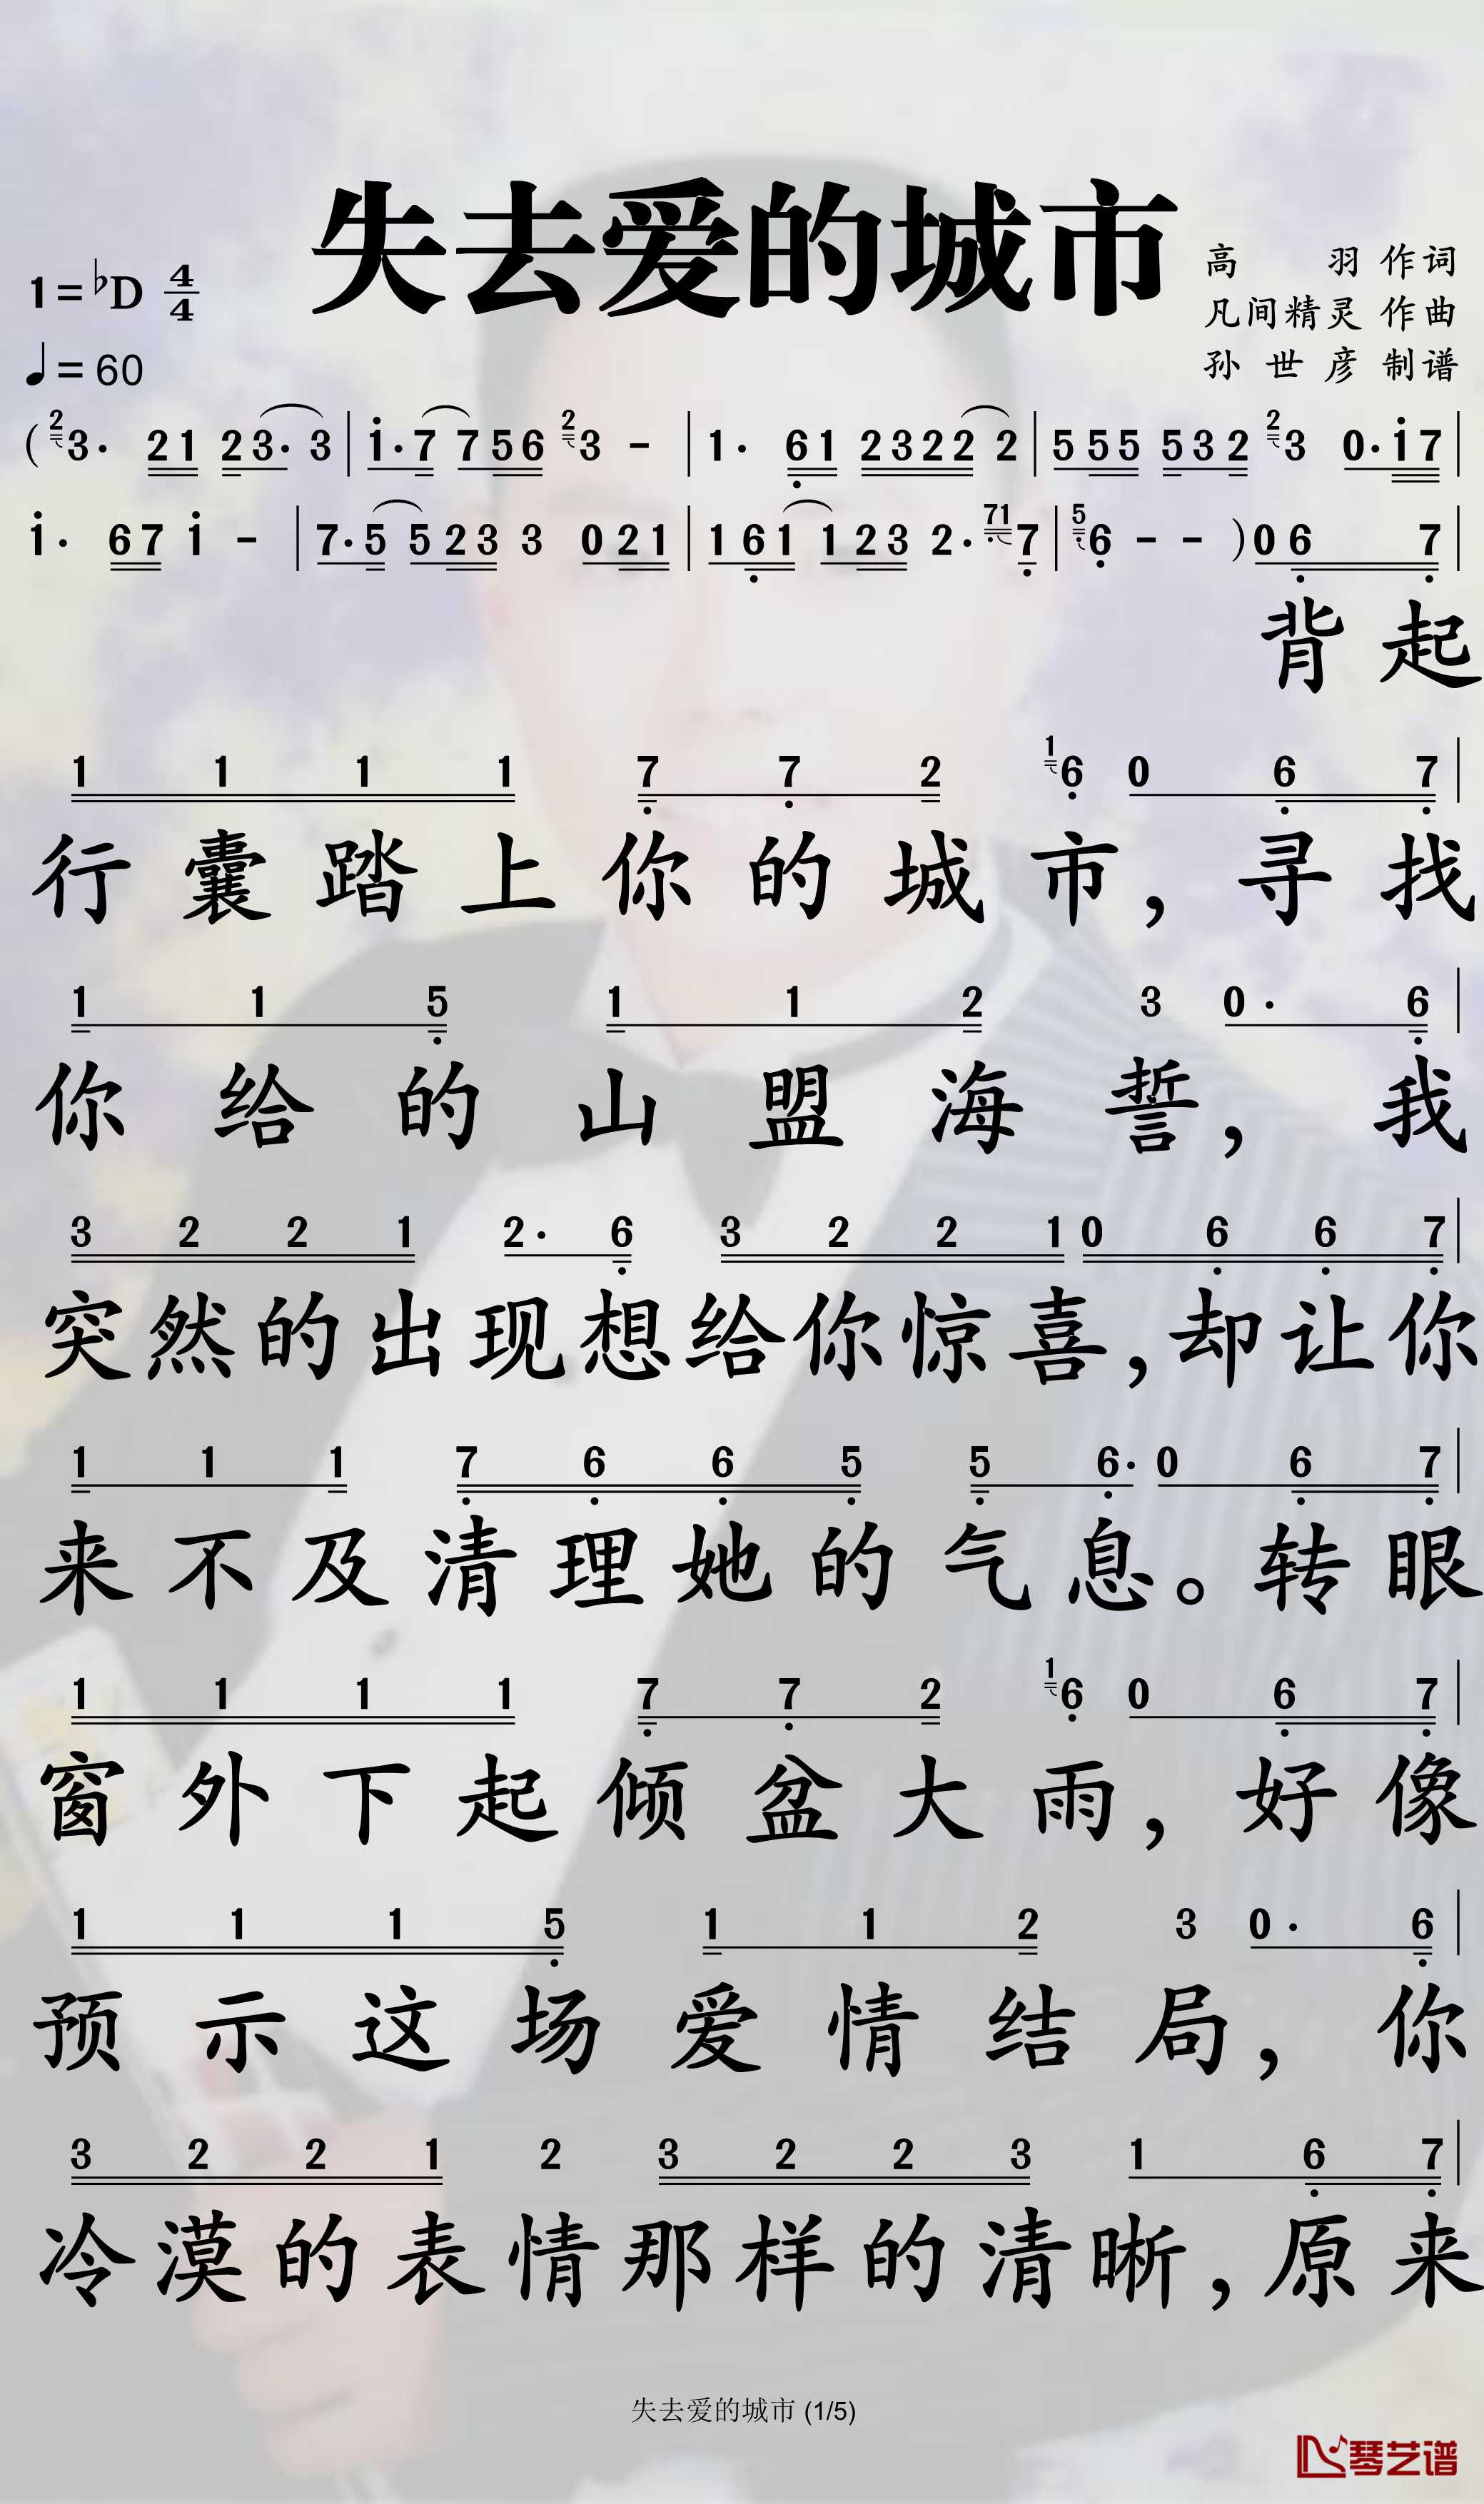 失去爱的城市
1=♭D 4/4
♩=60
高 羽 作词
凡间精灵 作曲
孙世彦 制谱
( 2 3· 21 23· 3 | i·7 756 2 3 - | 1· 61 2322 2 | 555 532 2 3 0·i7 |
i· 67 i - | 7·5 523 3 021 | 161 123 2· 71 7 | 5 6 - - ) 0 6 7 |
背起
1 1 1 1 7 7 2 1 6 0 6 7 |
行囊踏上你的城市，寻找
1 1 5 1 1 2 3 0· 6 |
你给的山盟海誓，我
3 2 2 1 2· 6 3 2 2 1 0 6 6 7 |
突然的出现想给你惊喜，却让你
1 1 1 7 6 6 5 5 6· 0 6 7 |
来不及清理她的气息。转眼
1 1 1 1 7 7 2 1 6 0 6 7 |
窗外下起倾盆大雨，好像
1 1 1 5 1 1 2 3 0· 6 |
预示这场爱情结局，你
3 2 2 1 2 3 2 2 3 1 6 7 |
冷漠的表情那样的清晰，原来
失去爱的城市 (1/5)
琴艺谱